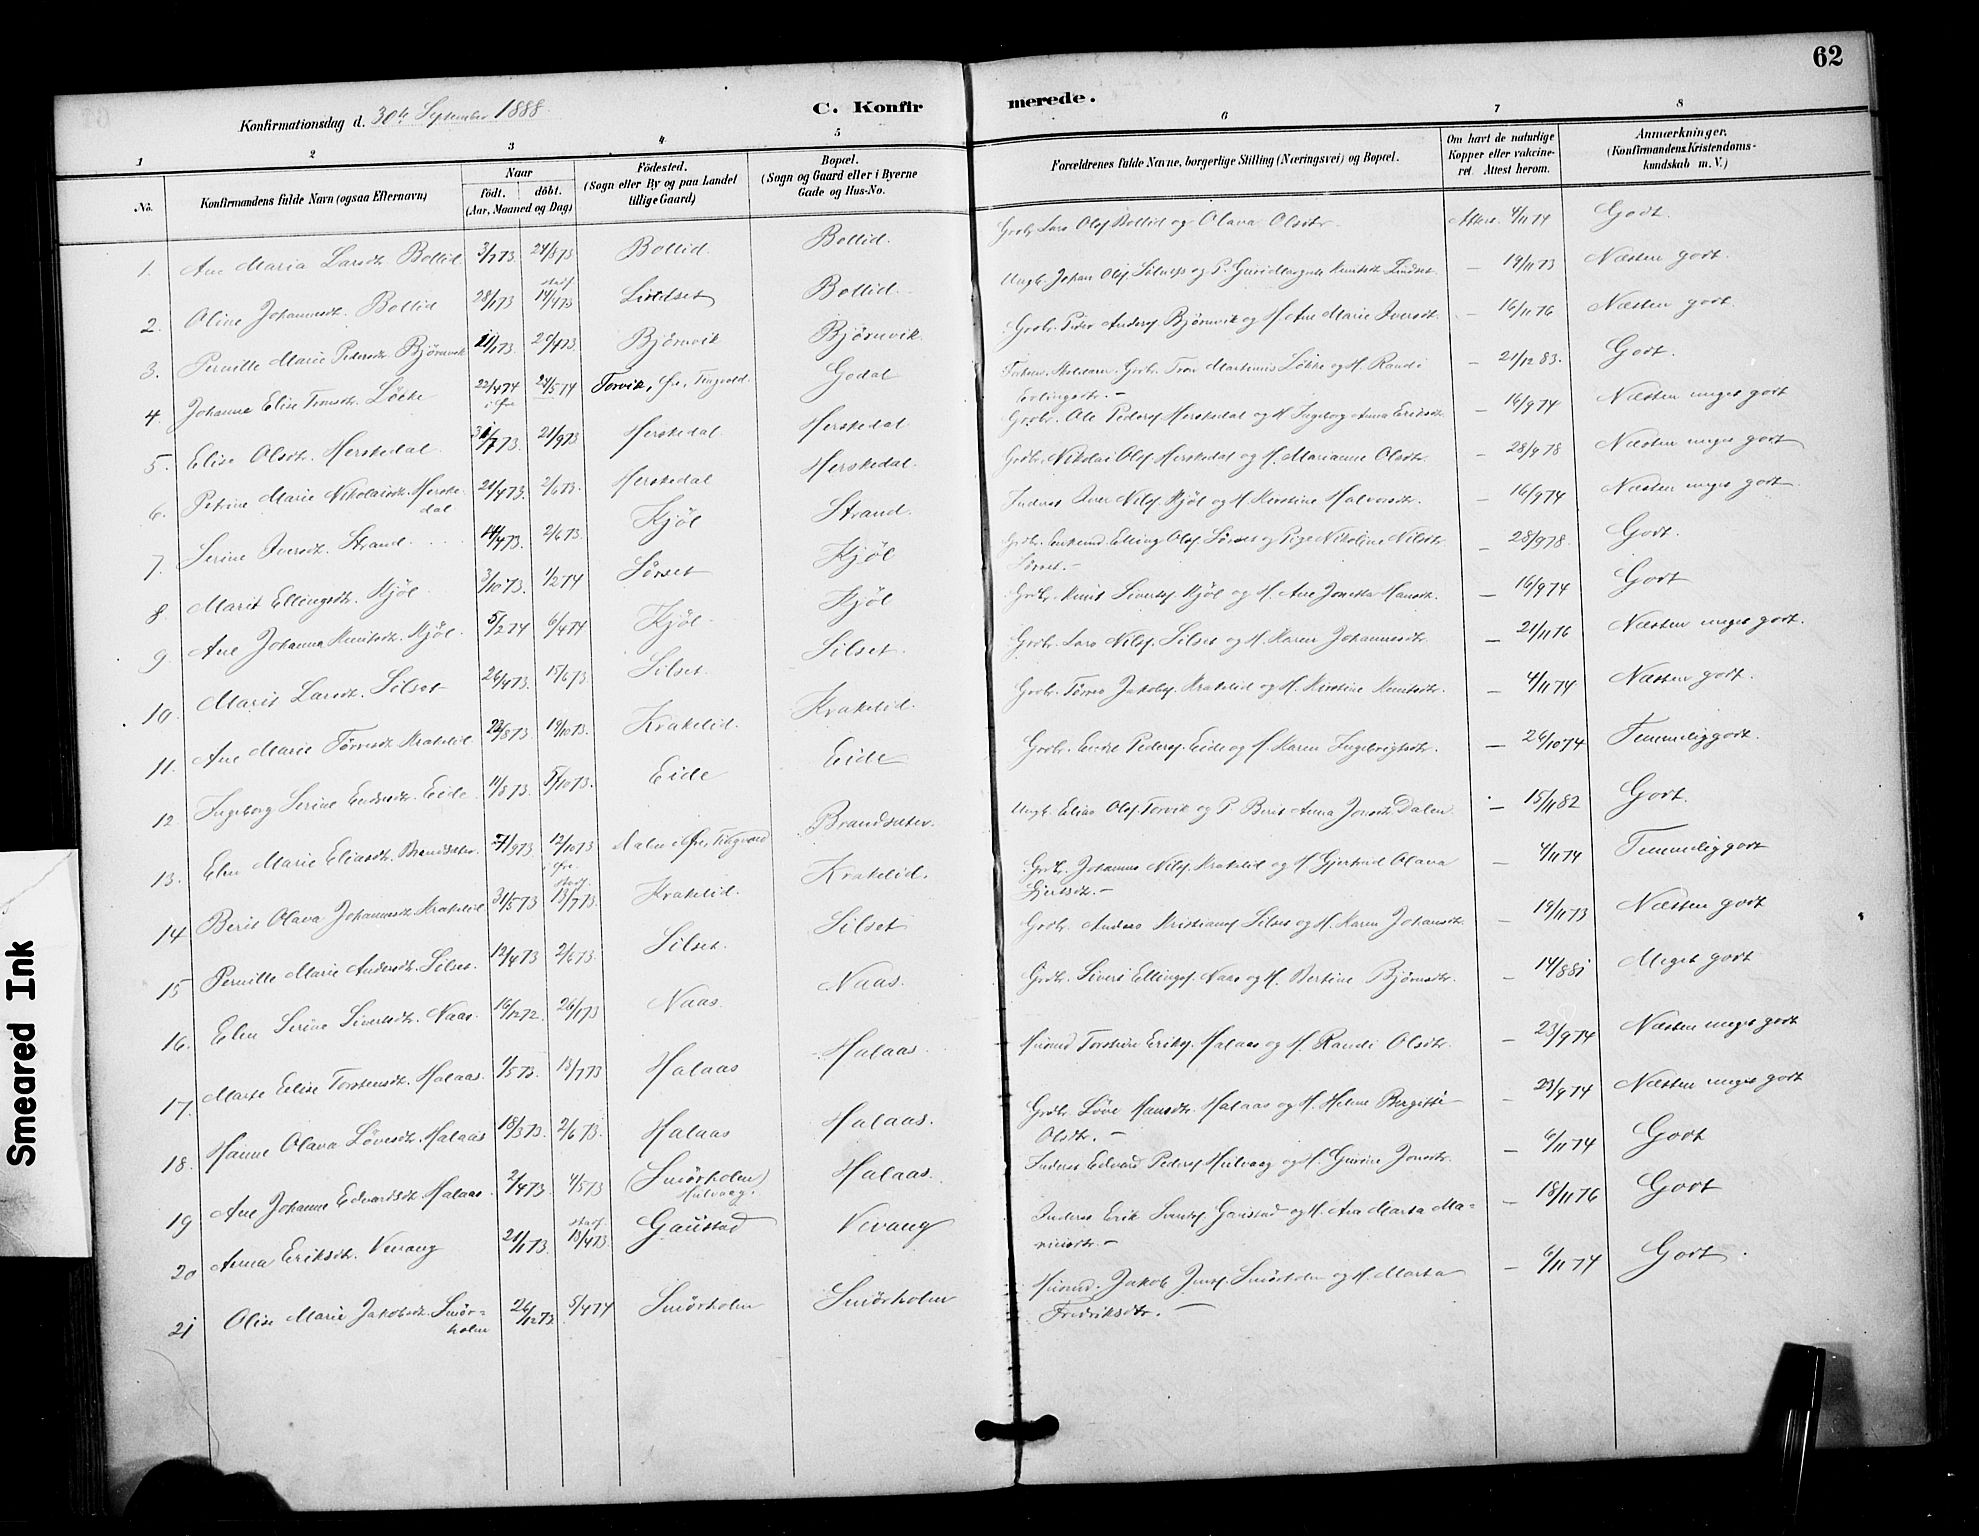 62
Konfirmationsdag d. 30te September 1888.
C. Konfirmerede.
1 2 3 4 5 6 7 8
No. Konfirmandens fulde Navn (ogsaa Efternavn) Naar födt. döbt. (Aar, Maaned og Dag) Födested. (Sogn eller By og paa Landet tillige Gaard) Bopæl. (Sogn og Gaard eller i Byerne Gade og Hus-No. Forældrenes fulde Navne, borgerlige Stilling (Næringsvei) og Bopæl. Om havt de naturlige Kopper eller vakcineret. Attest herom. Anmærkninger. (Konfirmandens Kristendomskundskab m. V.)
1. Ane Maria Larsdtr. Bollid 3/7 73. 24/8 73 Bollid. Bollid. Grdbr. Lars Olsf Bollid og Olava Olsdtr. Attest. 4/11 74 Godt.
2. Oline Johannesdtr. Bollid 28/1 73 14/4 73 Bollid. – 19/11 73 Næsten godt.
3. Pernille Marie Pedersdtr. Björnvik 29/4 73 Björnvik Björnvik. Grdbr. Peder Andersf Björnvik og H. Ane Marie Iversdtr. – 16/11 76 Næsten godt.
4. Johanne Elise Lökke 22/4 74 24/5 74 Torvik, Öre, Tingvold. Godal Grdbr. Martinus Løkke og H. Randi Erlingsdtr. – – 21/12 83. Godt.
5. Elise Olsdtr. Herskedal. 21/9 73 Herskedal. Herskedal Grdbr. Ole Pedersf Herskedal og H. Ingeborg Anna Eriksdtr. – 16/9 74 Næsten meget godt
6. Petrine Marie Nikolaisdtr. Herskedal 2/6 73. Herskedal Herskedal. Grdbr. Nikolai Olsf Herskedal og H. Marianne Olsdtr. – 28/9 78 Næsten meget godt
7. Serine Iversdtr. Strand 14/4 73. 2/6 73 Kjöl Strand. Inderst Iver Nilsf Kjöl og H. Kirstine Halvorsdtr. – 16/9 74 Næsten meget godt.
8 Marit Ellingsdtr. Kjöl 3/10 73. 1/2 74 Sörset Kjöl Grdbr. Enkemd Elling Olsf Sörset og Pige Nikoline Nilsdtr. Sörset. – – 28/9 78. Godt.
9. Ane Johanna Knutsdtr. Kjöl. 5/2 74 6/4 74 Kjöl. Kjöl Grdbr. Knut Sivertsf Kjöl og H. Ane Jonetta Hansdtr. – 16/9 74 Godt
10. Marit Larsdtr. Silset 26/4 73. 15/6 73. Silset. Silset. Grdbr. Lars Nilsf. Silset og H. Karen Johannesdtr. – 21/11 76 Næsten meget godt.
11. Ane Marie Törresdtr. Krakelid. 19/10 73. Krakelid. Krakelid. Grdbr. Törres Jakobsf. Krakelid og H. Kirstine Knutsdtr. – 4/11 74 Næsten godt.
12. Ingeborg Serine Endresdtr. Eide 14/8 73. 5/10 73. Eide Eide Grdbr. Endre Pedersf. Eide og H. Karen Ingebrigtsdtr. – 26/10 74 Temmelig godt.
13. Elen Marie Eliasdtr. Brandsæter. 12/10 73 i Öre, Tingvold Brandsæter. Ungk. Elias Olsf Torvik og P. Berit Anna Jonsdtr Dalen – 15/11 82 Godt.
14 Berit Olava Johannesdtr Krakelid 31/5 73 13/7 73. Krakelid. Krakelid. Grdbr. Johannes Nilsf. Krakelid og H Gjertrud Olava Gjertsdtr. – – 4/11 74 Temmelig godt
15 Pernille Marie Andersdtr. Silset. 12/4 73 2/6 73. Silset. Silset Grdbr. Anders Kristiansf Silset og H. Karen Johansdtr. – 19/11 73 Næsten godt
16. Elen Serine Sivertsdtr. Naas. 16/12 72. 26/1 73 Naas. Naas. Grdbr. Sivert Ellingsf Naas og H. Bertine Björnsdtr. – 14/8 81 Meget godt
17. Marte Elise Torstensdtr. Halaas. 4/5 73. 13/7 73 Halaas Halaas. Husmd Torstein Eriksf. Halaas og H. Randi Olsdtr. – 23/9 74 Næsten meget godt
18. Hanne Olava Lövesdtr. Halaas 18/3 73. 2/6 73. Halaas Halaas. Grdbr. Löve Hansdtr. Halaas og H. Helene Bergitte Olsdtr. – – 23/9 74 Næsten meget godt
19 Ane Johanne Edvardsdtr Halaas. 2/4 73. 4/5 73 (Smörholm) Hulvaag. Halaas. Inderst Edvard Pedersf Hulvaag og H. Guroine Jonsdtr. – 6/11 74 Godt
20 Anna Eriksdtr. Vevang 13/4 73. Gaustad Vevang Inderst Erik Gaustad og H. Ane Marta Marinusdtr. – – 18/11 76 Godt
21 Olise Marie Jakobsdtr. Smörholm 26/12 73. 5/4 74 Smörholm Smörholm Husmd. Jakob Jensf. Smörholm og H. Marta Fredriksdtr. – – 6/11 74 Godt.
Smeared Ink